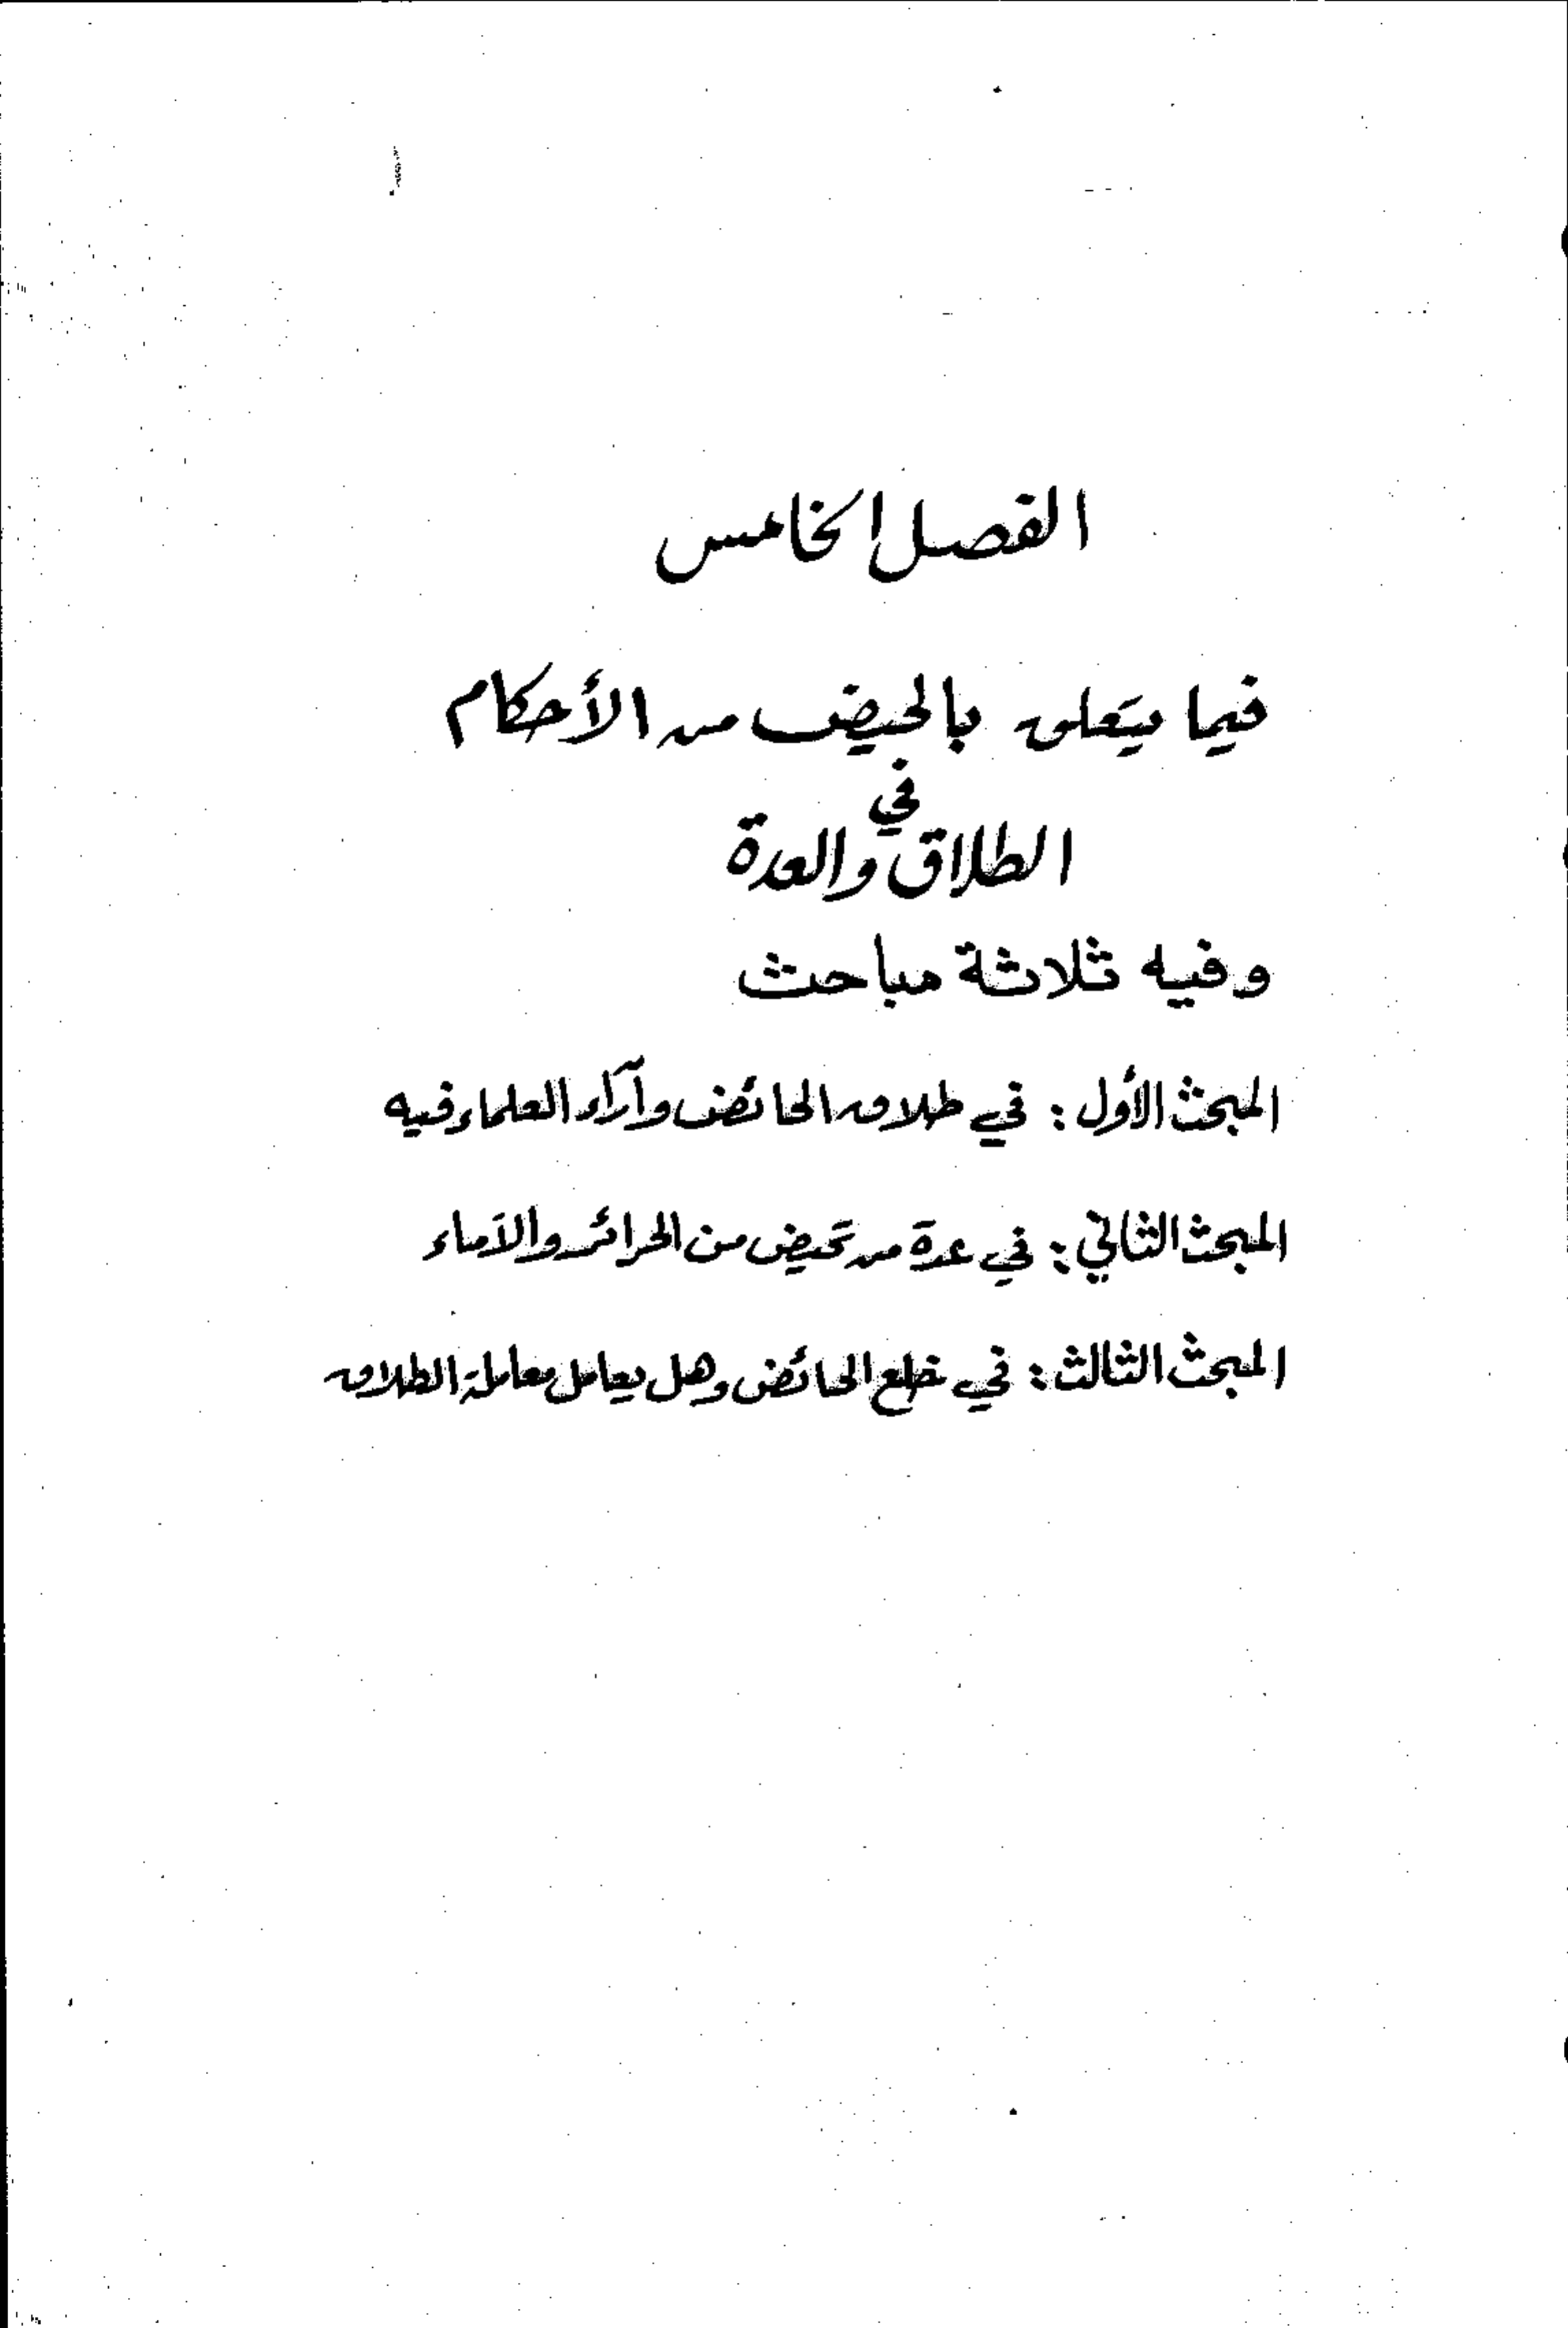 الفصل الخامس
فيما يتعلق بالحيض من الأحكام
في
الطلاق والعدة
وفيه ثلاثة مباحث
المبحث الأول : في طلاق الحائض وآراء العلماء فيه
المبحث الثاني : في عدة من تحيض من الحرائر والآماء
المبحث الثالث : في خلع الحائض وهل يعامل معاملة الطلاق